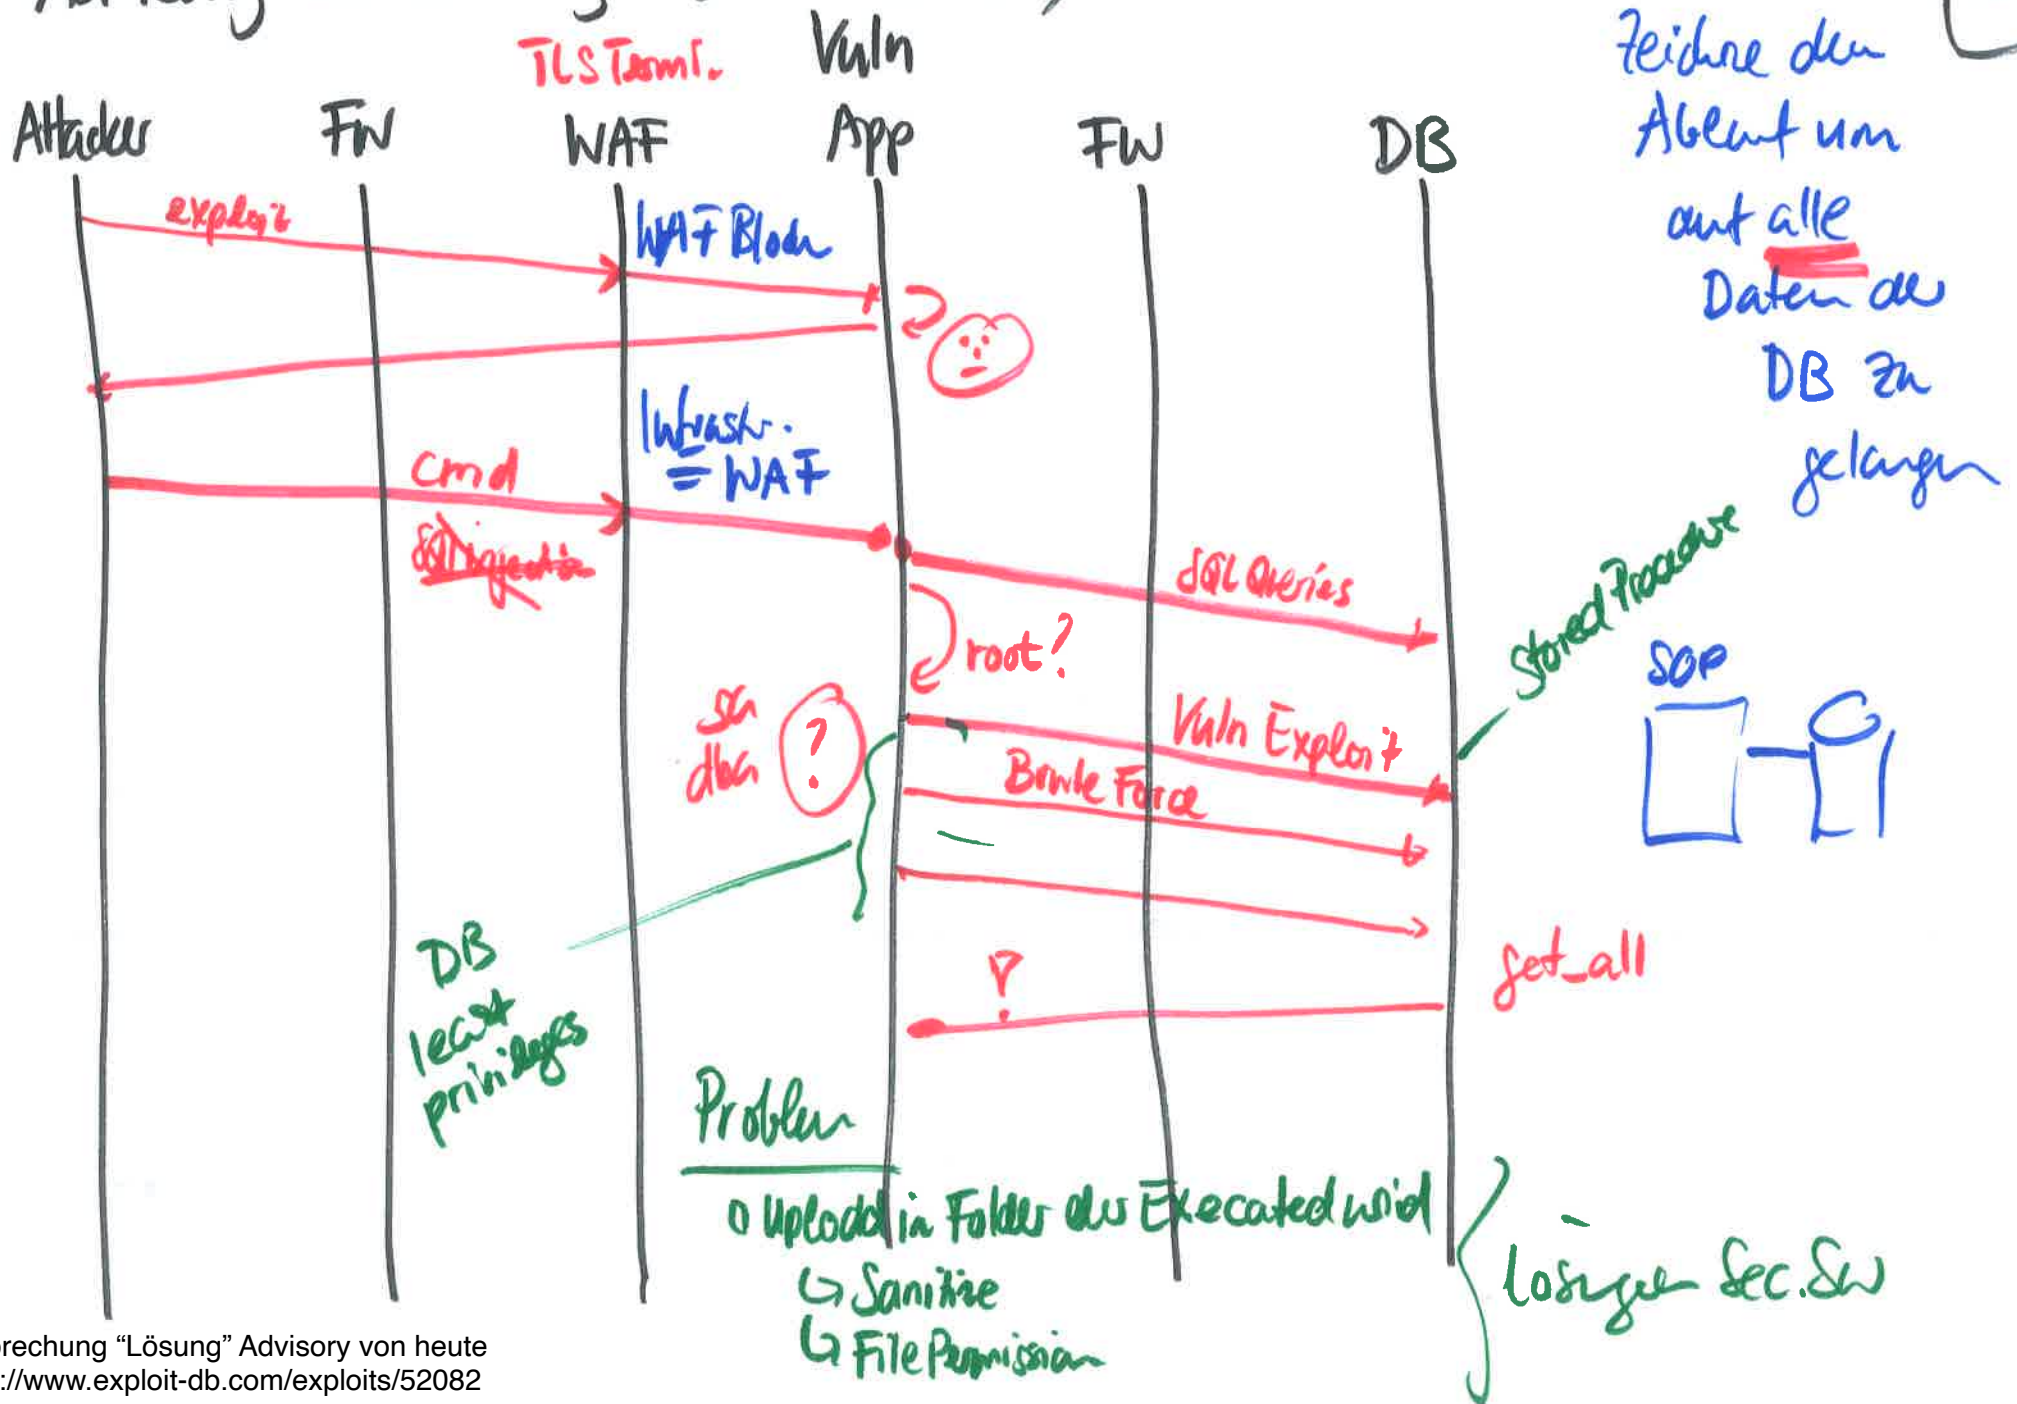 TLS Termi.
Vuln
Attacker FW WAF App FW DB
Zeichne den
Ablauf um
auf alle
Daten der
DB zu
gelangen
exploit
WAF Block
Infrastr.
= WAF
cmd
SQL injection
SQL Queries
root?
Stored Procedure
SOP
sa
dba
?
Vuln Exploit
Brute Force
get_all
?
DB
least
privileges
Problem
o Upload in Folder der Executed wird
↳ Sanitize
↳ File Permission
Lösungen Sec. SW
prechung “Lösung” Advisory von heute
://www.exploit-db.com/exploits/52082